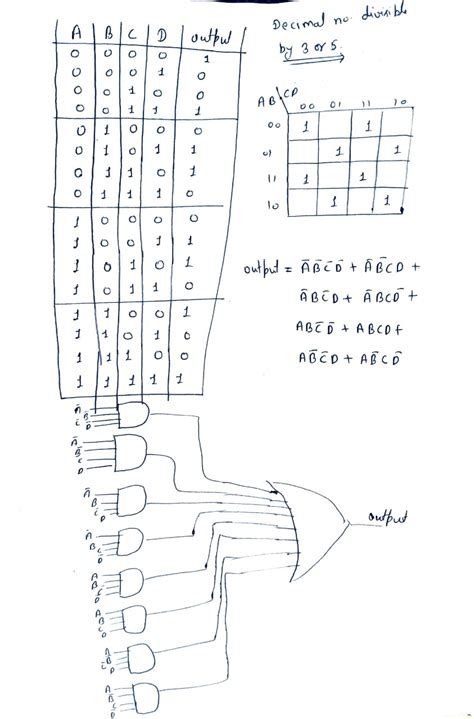 Decimal no. divisible
by 3 or 5.
A B C D output
0 0 0 0 1
0 0 0 1 0
0 0 1 0 0
0 0 1 1 1
0 1 0 0 0
0 1 0 1 1
0 1 1 0 1
0 1 1 1 0
1 0 0 0 0
1 0 0 1 1
1 0 1 0 1
1 0 1 1 0
1 1 0 0 1
1 1 0 1 0
1 1 1 0 0
1 1 1 1 1
AB\CD 00 01 11 10
00 1 1
01 1 1
11 1 1
10 1 1
output = ĀB̄C̄D̄ + ĀB̄CD +
ĀBC̄D + ĀBCD̄ +
ABC̄D̄ + ABCD +
AB̄C̄D + AB̄CD̄
output